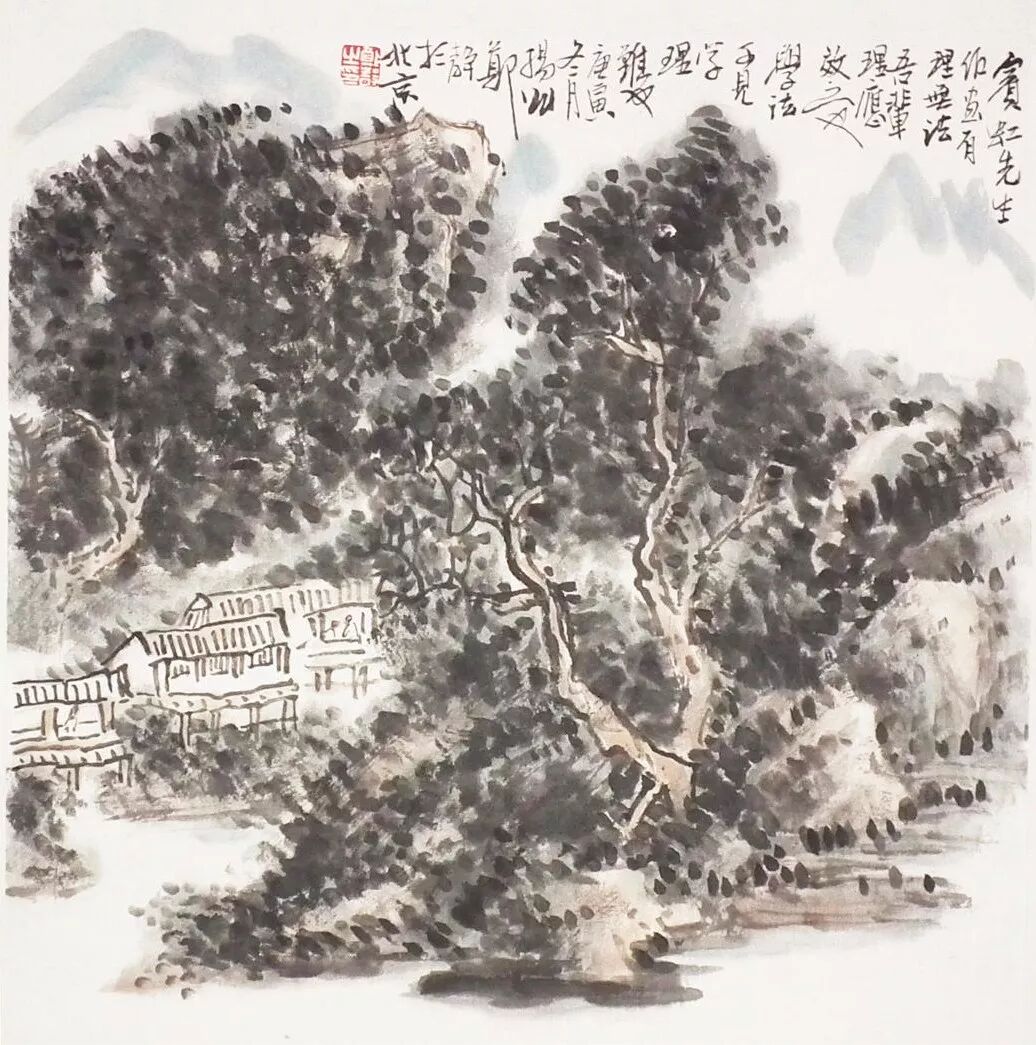 賓虹先生
作画有
理無法
吾輩
理應
效之
學法
不見
学
理
難
庚寅
冬月
揚州
鄭
靜
於
北京